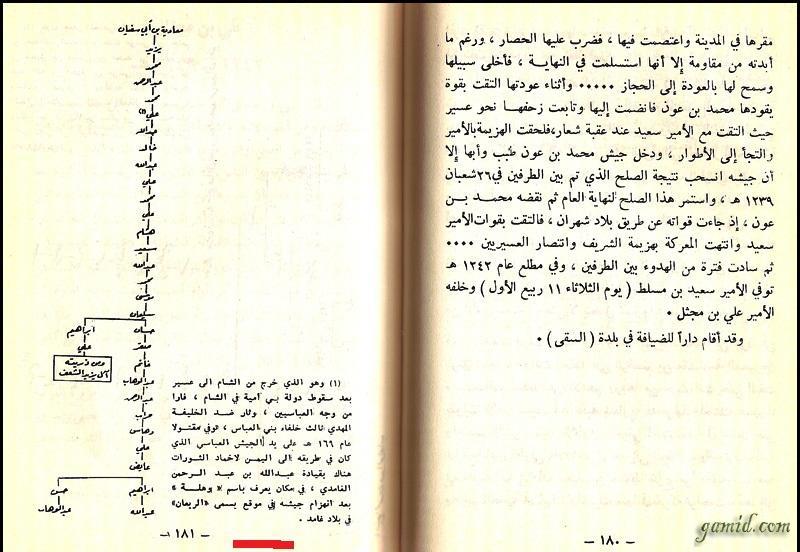 مقرها في المدينة واعتصمت فيها ، فضرب عليها الحصار ، ورغم ما
أبدته من مقاومة إلا أنها استسلمت في النهاية ، فأخلى سبيلها
وسمح لها بالعودة إلى الحجاز ..... وأثناء عودتها التقت بقوة
يقودها محمد بن عون فانضمت إليها وتابعت زحفها نحو عسير
حيث التقت مع الأمير سعيد عند عقبة شعار،فلحقت الهزيمة بالأمير
والتجأ إلى الأطوار ، ودخل جيش محمد بن عون طبب وأبها إلا
أن جيشه انسحب نتيجة الصلح الذي تم بين الطرفين في٢٦شعبان
١٢٣٩ هـ ، واستمر هذا الصلح لنهاية العام ثم نقضه محمد بن
عون ، إذ جاءت قواته عن طريق بلاد شهران ، فالتقت بقوات الأمير
سعيد وانتهت المعركة بهزيمة الشريف وانتصار العسيريين ....
ثم سادت فترة من الهدوء بين الطرفين ، وفي مطلع عام ١٢٤٢ هـ
توفي الأمير سعيد بن مسلط ( يوم الثلاثاء ١١ ربيع الأول ) وخلفه
الأمير علي بن مجثل .
وقد أقام داراً للضيافة في بلدة ( السقى ) .
- ١٨٠ -
معاوية بن أبي سفيان
يزيد
محمد
عبدالرحمن
محمد
علي (١)
عبدالله
خالد
عبدالله
علي
محمد
علي
هشام
سعيد
عبدالله
محمد
موسى
سليمان
حسان
ابراهيم
علي
ومن ذريته
آل يزيد
غانم
عبدالوهاب
عبدالرحمن
علي
عايض
ابراهيم
حسن
عبدالله
عبدالوهاب
(١) وهو الذي خرج من الشام الى عسير
بعد سقوط دولة بني أمية في الشام ، فارا
من وجه العباسيين ، وثار ضد الخليفة
المهدي ثالث خلفاء بني العباس ، توفي مقتولا
عام ١٦٩ هـ على يد الجيش العباسي الذي
كان في طريقه الى اليمن لاخماد الثورات
هناك بقيادة عبدالله بن عبد الرحمن
الغامدي ، في مكان يعرف باسم
بعد انهزام جيشه في موقع يسمى «الريعان»
في بلاد غامد .
- ١٨١ -
gamid.com